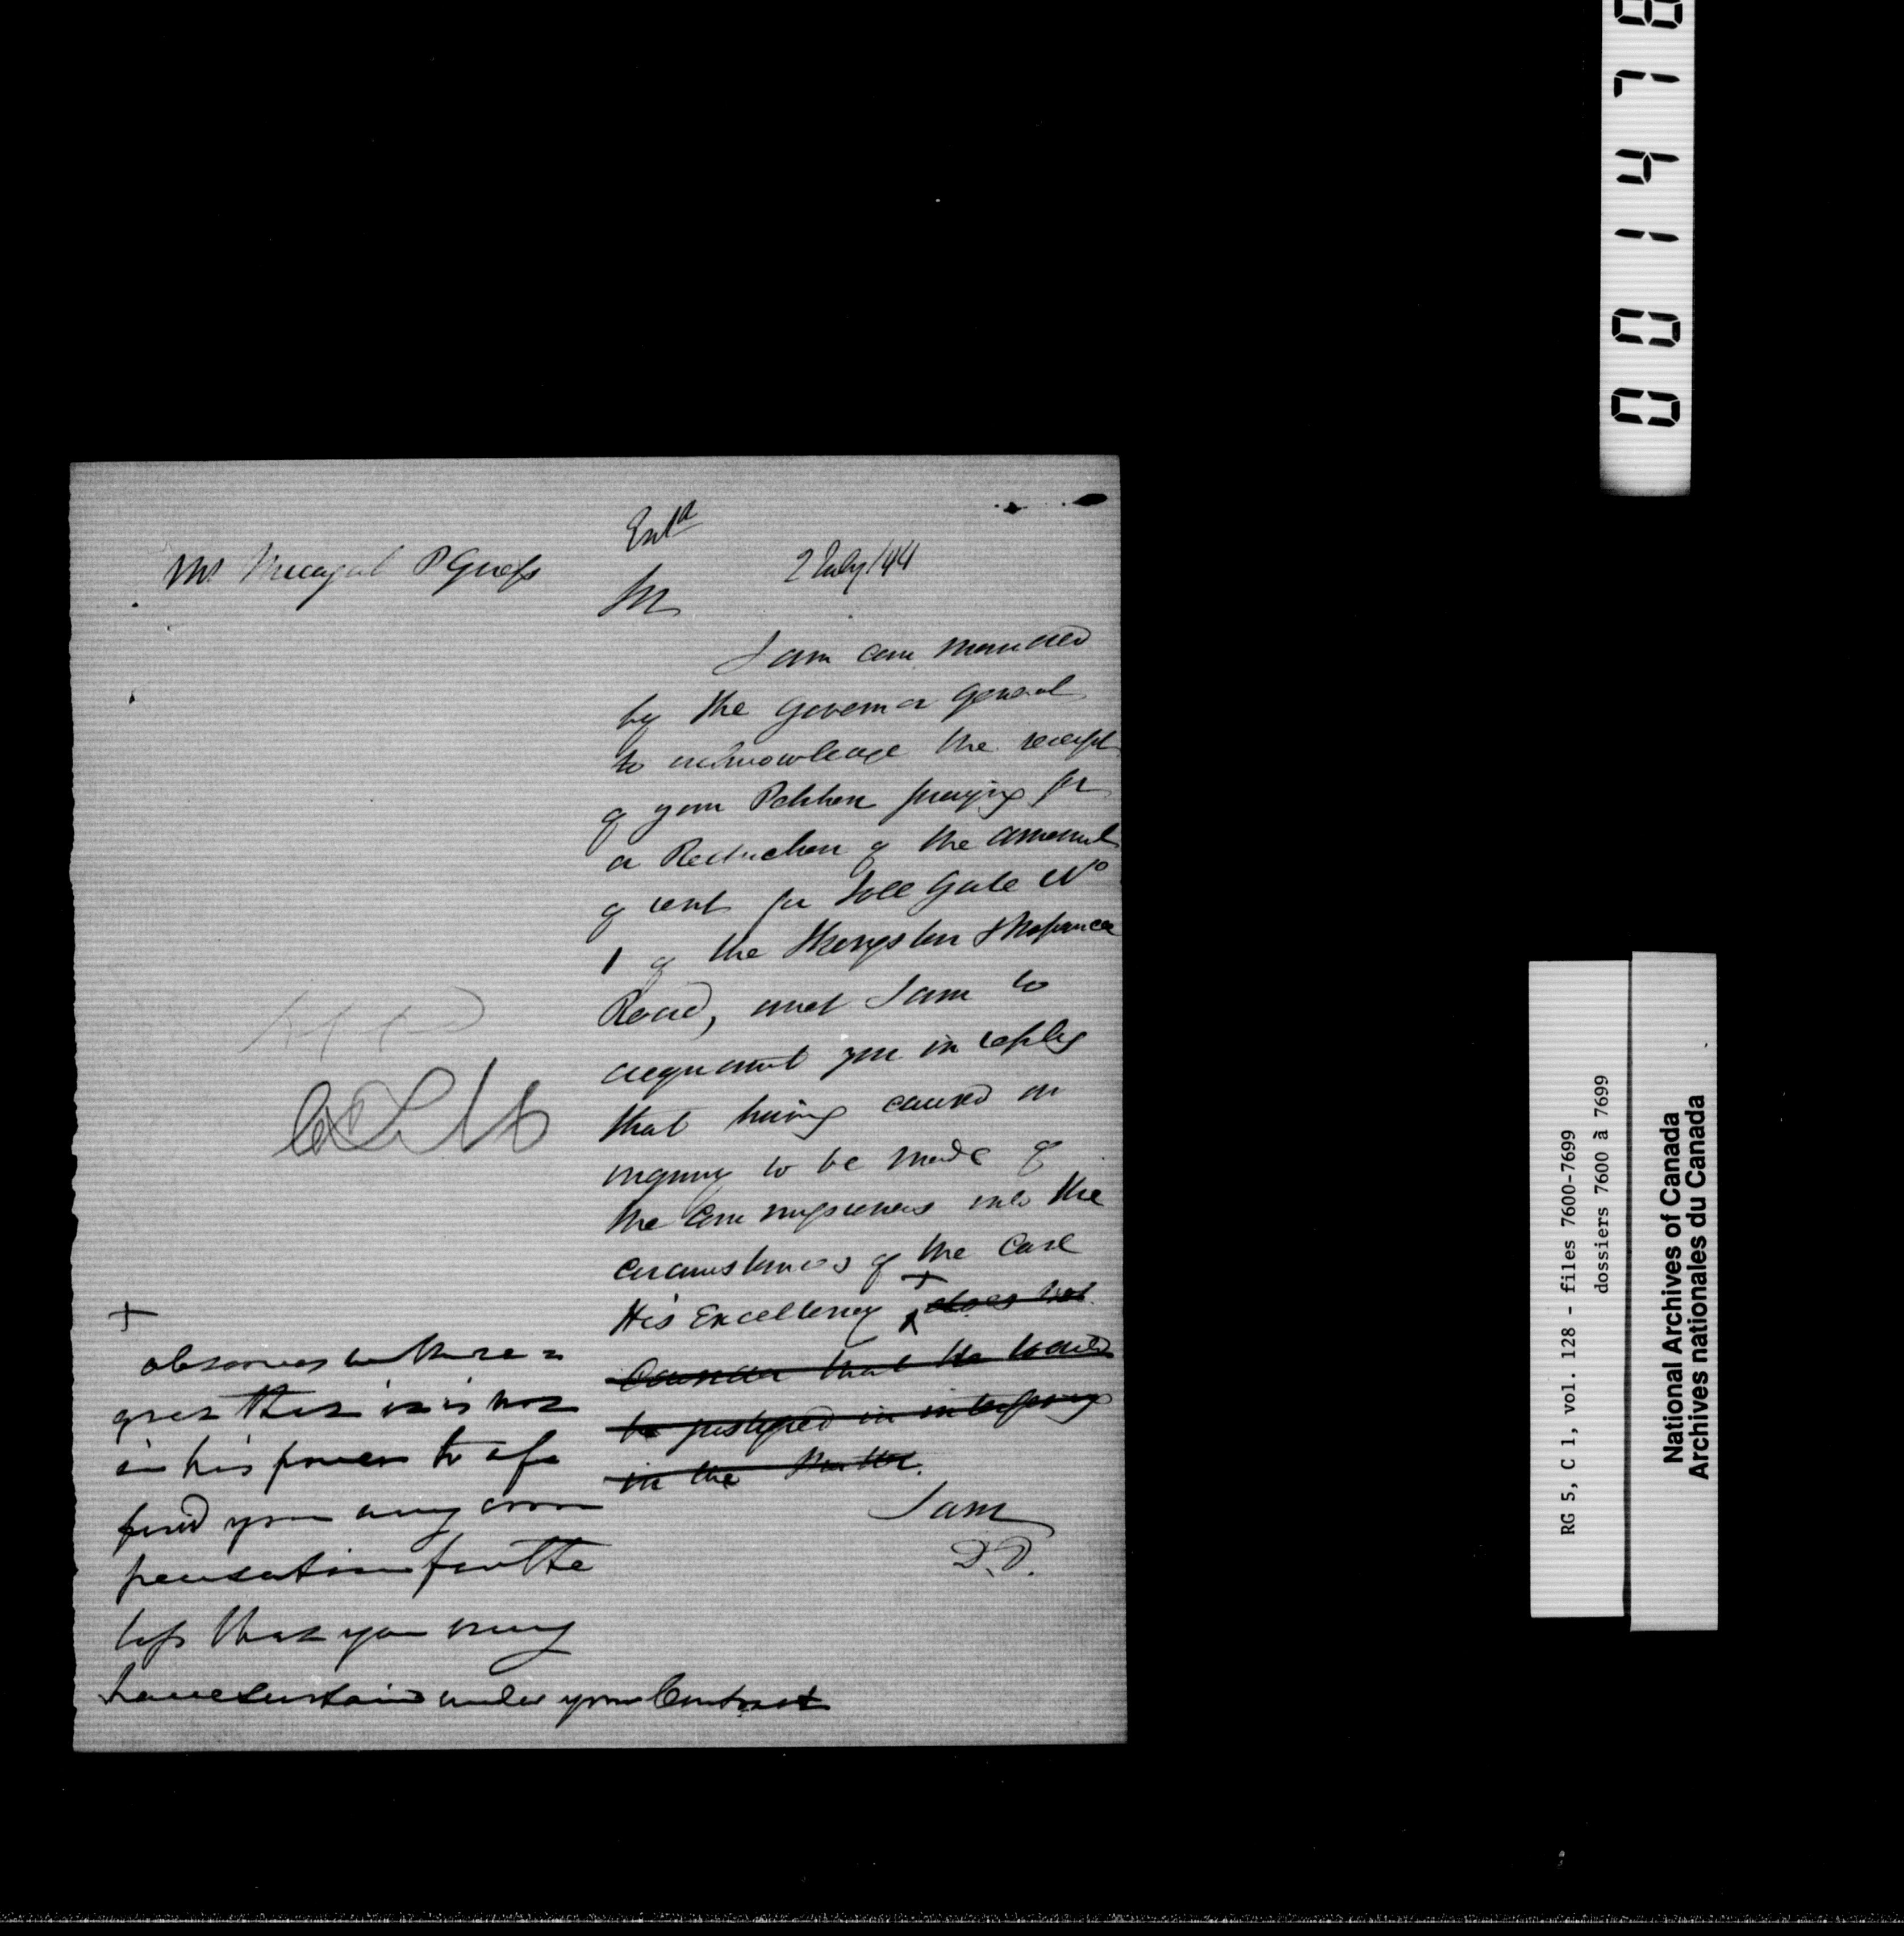 Entd
Mr P Guess
2 July/44
Sir
I am commanded
by the Governor General
to acknowledge the receipt
of your Petition praying for
a Reduction of the amount
of rent for Toll Gate No
1 of the Kingston & Napanee
Road, and I am to
acquaint you in reply
that having caused an
inquiry to be made of
the Commissioners into the
circumstances of the Case
His Excellency + does not
consider that He would
be justified in interfering
in the Matter.
I am
D.D.
+
observes with re=
gret that it is not
in his power to af
ford you any com
pensation for the
loss that you may
have sustaind under your Contract
RG 5, C 1, vol. 128 - files 7600-7699
dossiers 7600 à 7699
National Archives of Canada
Archives nationales du Canada